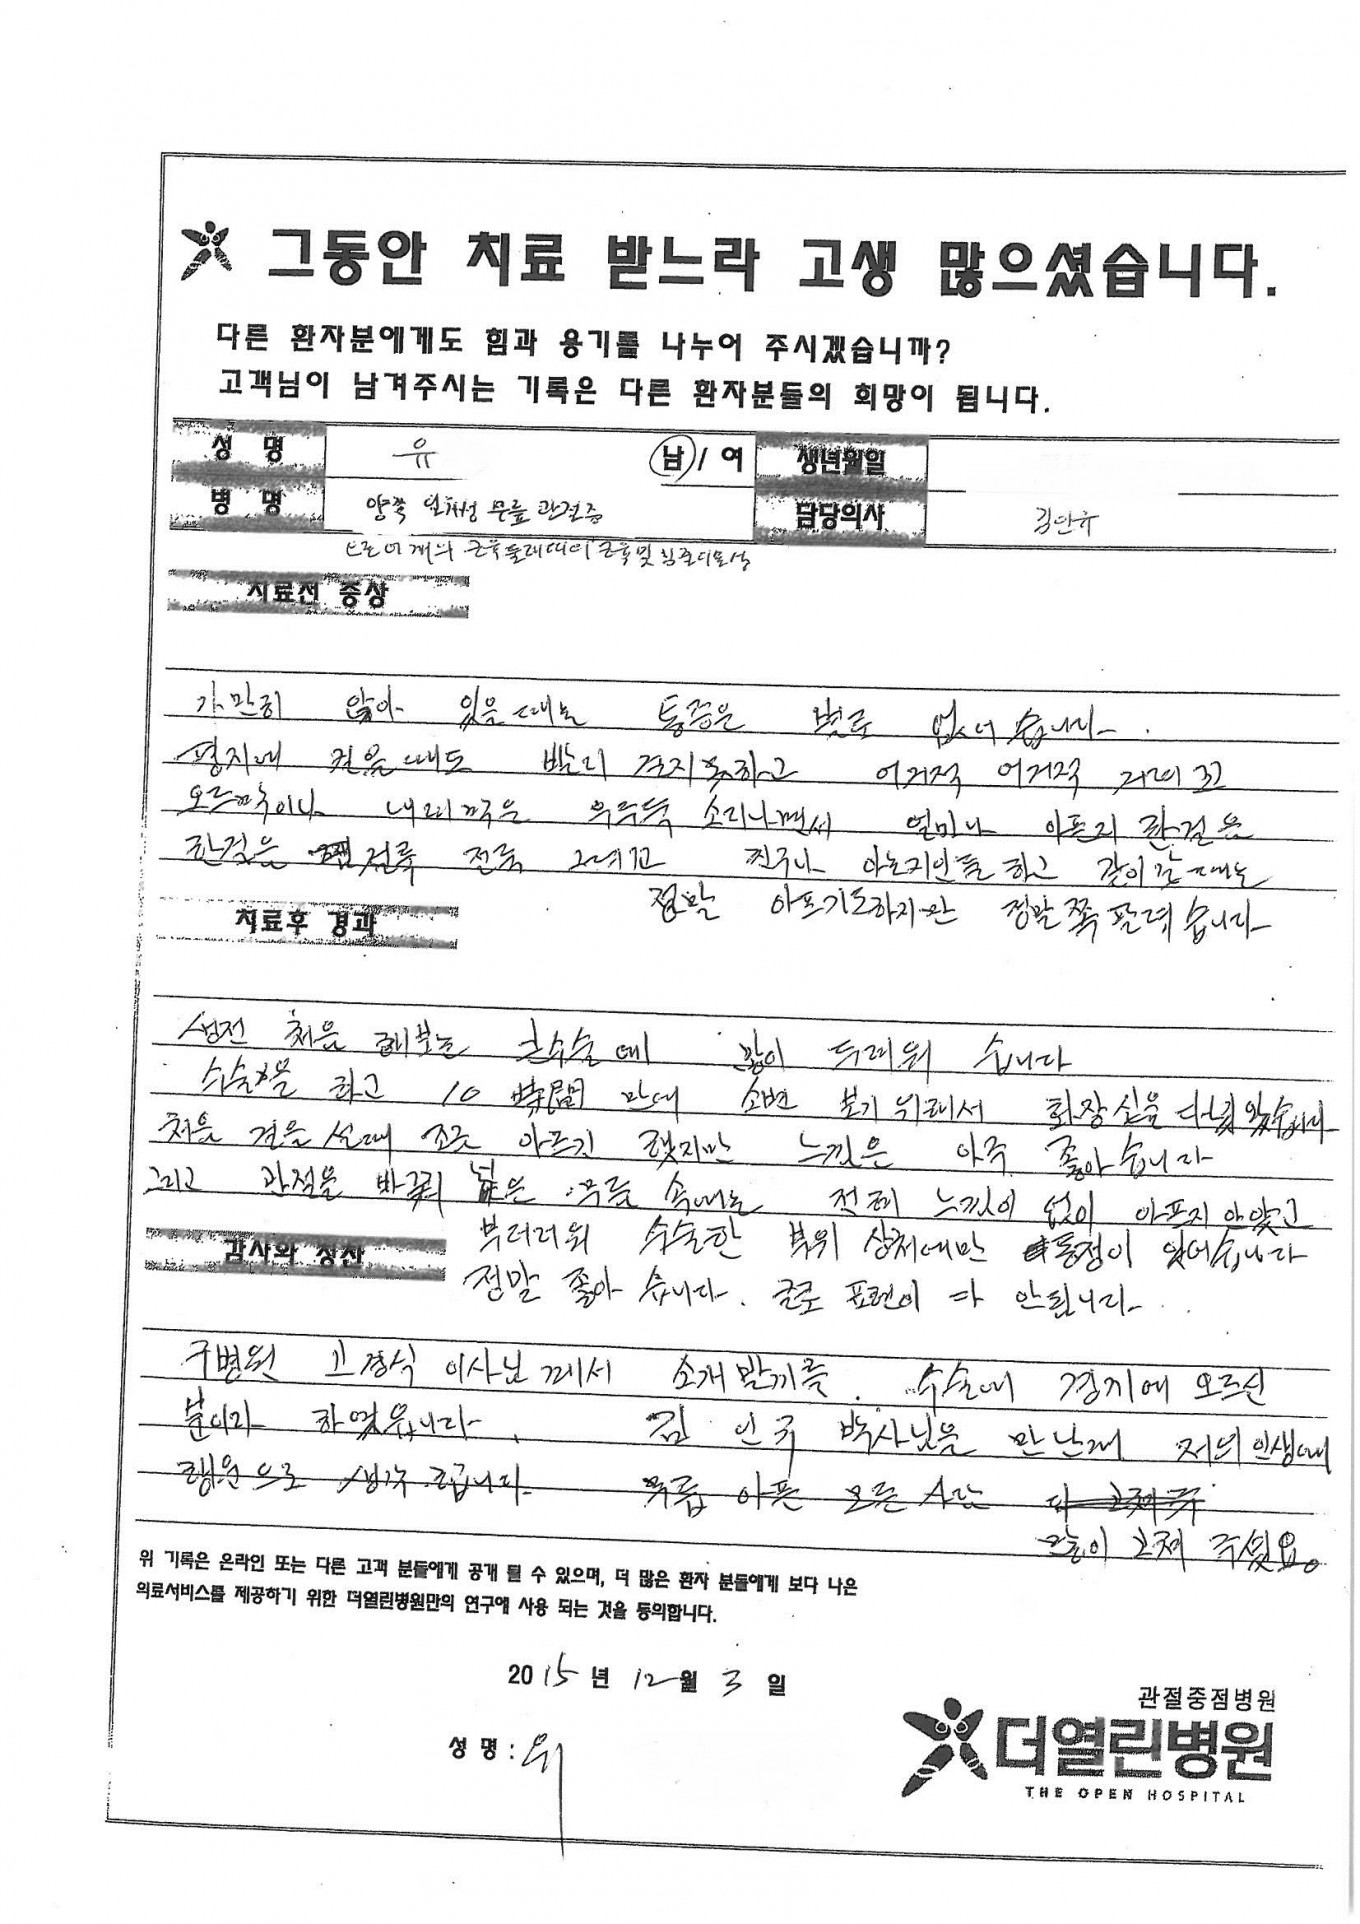 그동안 치료 받느라 고생 많으셨습니다.
다른 환자분에게도 힘과 용기를 나누어 주시겠습니까?
고객님이 남겨주시는 기록은 다른 환자분들의 희망이 됩니다.
성 명 유 남 / 여 생년월일
병 명 양쪽 일차성 무릎 관절증 담당의사
근육둘레띠의 근육 및 힘줄의
치료전 증상
가만히 앉아 있을때는 통증은 별로 없어습니다.
평지에 걸을때도 빨리 걷지못하고 어거적 어거적 거리고
오르막이나 내리막은 우두둑 소리나면서 얼마나 아픈지 한걸음
한걸음 절룩 전룩 그리고 친구나 아는지인들 하고 같이갈때는
정말 아프기도하지만 정말쪽팔려습니다
치료후 경과
생전 처음 해보는 큰수술에 많이 두려워 습니다
수술을 하고 10 時間 만에 소변 보기위해서 화장실을
처음 걸을 설때 조금 아프긴 했지만 느낌은 아주 좋아습니다
그리고 관절을 바꿔 넣은 무릎 속에는 전혀 느낌이 없이 아프지 안았고
부더러워 수술한 부위 상처에만 통정이 있어습니다
정말 좋아 습니다. 글로 표현이 다 안됩니다.
감사와 칭찬
구병원 고경식 이사님께서 소개받기를 수술에 경지에 오르신
분이라 하였읍니다. 김 인규 박사님을 만난게 저의 인생에
행운으로 생각 합니다. 무릅 아픈 모든 사람
많이 고쳐 주싶요。
위 기록은 온라인 또는 다른 고객 분들에게 공개 될 수 있으며, 더 많은 환자 분들에게 보다 나은
의료서비스를 제공하기 위한 더열린병원만의 연구에 사용 되는 것을 동의합니다.
2015년 12월 3일
성 명 : 유
관절중점병원
더열린병원
THE OPEN HOSPITAL